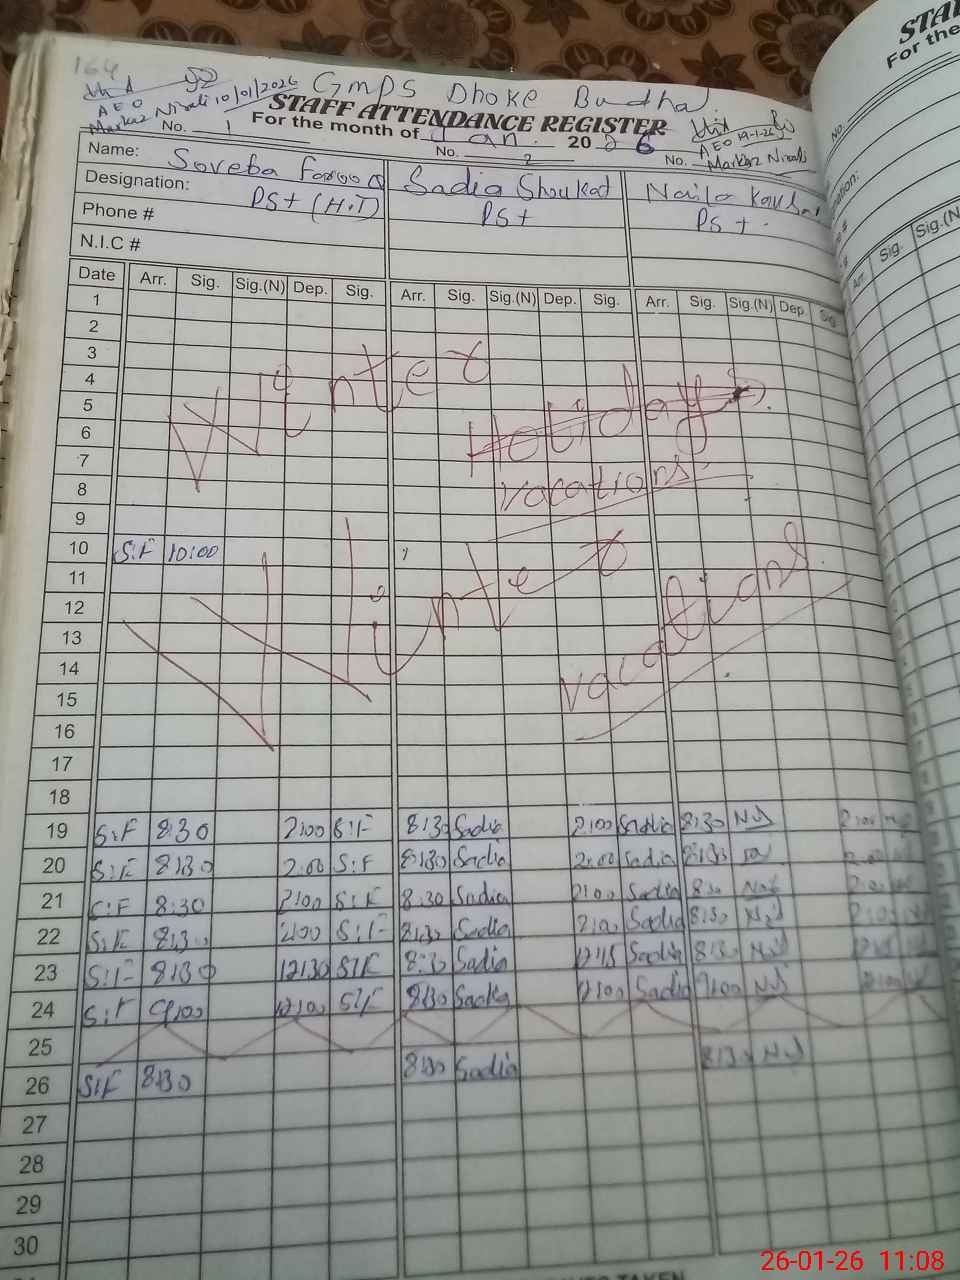 164
GMPS Dhoke Budhal.
AEO
Markaz Nirali 10/01/2026
STAFF ATTENDANCE REGISTER
For the month of Jan. 2026
AEO 19-1-26
Markaz Nirali
No. 1 No. 2 No.
Name: Soveba Farooq Sadia Shoukat Naila Kausar
Designation: PST (H.T) PST PST.
Phone #
N.I.C #
Date Arr. Sig. Sig.(N) Dep. Sig. Arr. Sig. Sig.(N) Dep. Sig. Arr. Sig. Sig.(N) Dep. Sig
1
2
3
4
5
6
7
8
9
Winter Holidays.
vacations.
10 S:F 10:00
11
12
13
14
15
16
17
18
Winter vacations.
19 S:F 8:30 2:00 S:F 8:30 Sadia 2:00 Sadia 8:30
20 S:F 8:30 2:00 S:F 8:30 Sadia 2:00 Sadia 8:30
21 S:F 8:30 2:00 S:F 8:30 Sadia 2:00 Sadia 8:30
22 S:F 8:30 2:00 S:F 8:30 Sadia 2:00 Sadia 8:30
23 S:F 8:30 12:30 S:F 8:30 Sadia 12:15 Sadia 8:30
24 S:F 9:00 12:00 S:F 8:30 Sadia 12:00 Sadia 9:00
25
26 S:F 8:30 8:30 Sadia 8:30
27
28
29
30
STA
For the
No.
Arr. Sig. Sig.(N
26-01-26 11:08